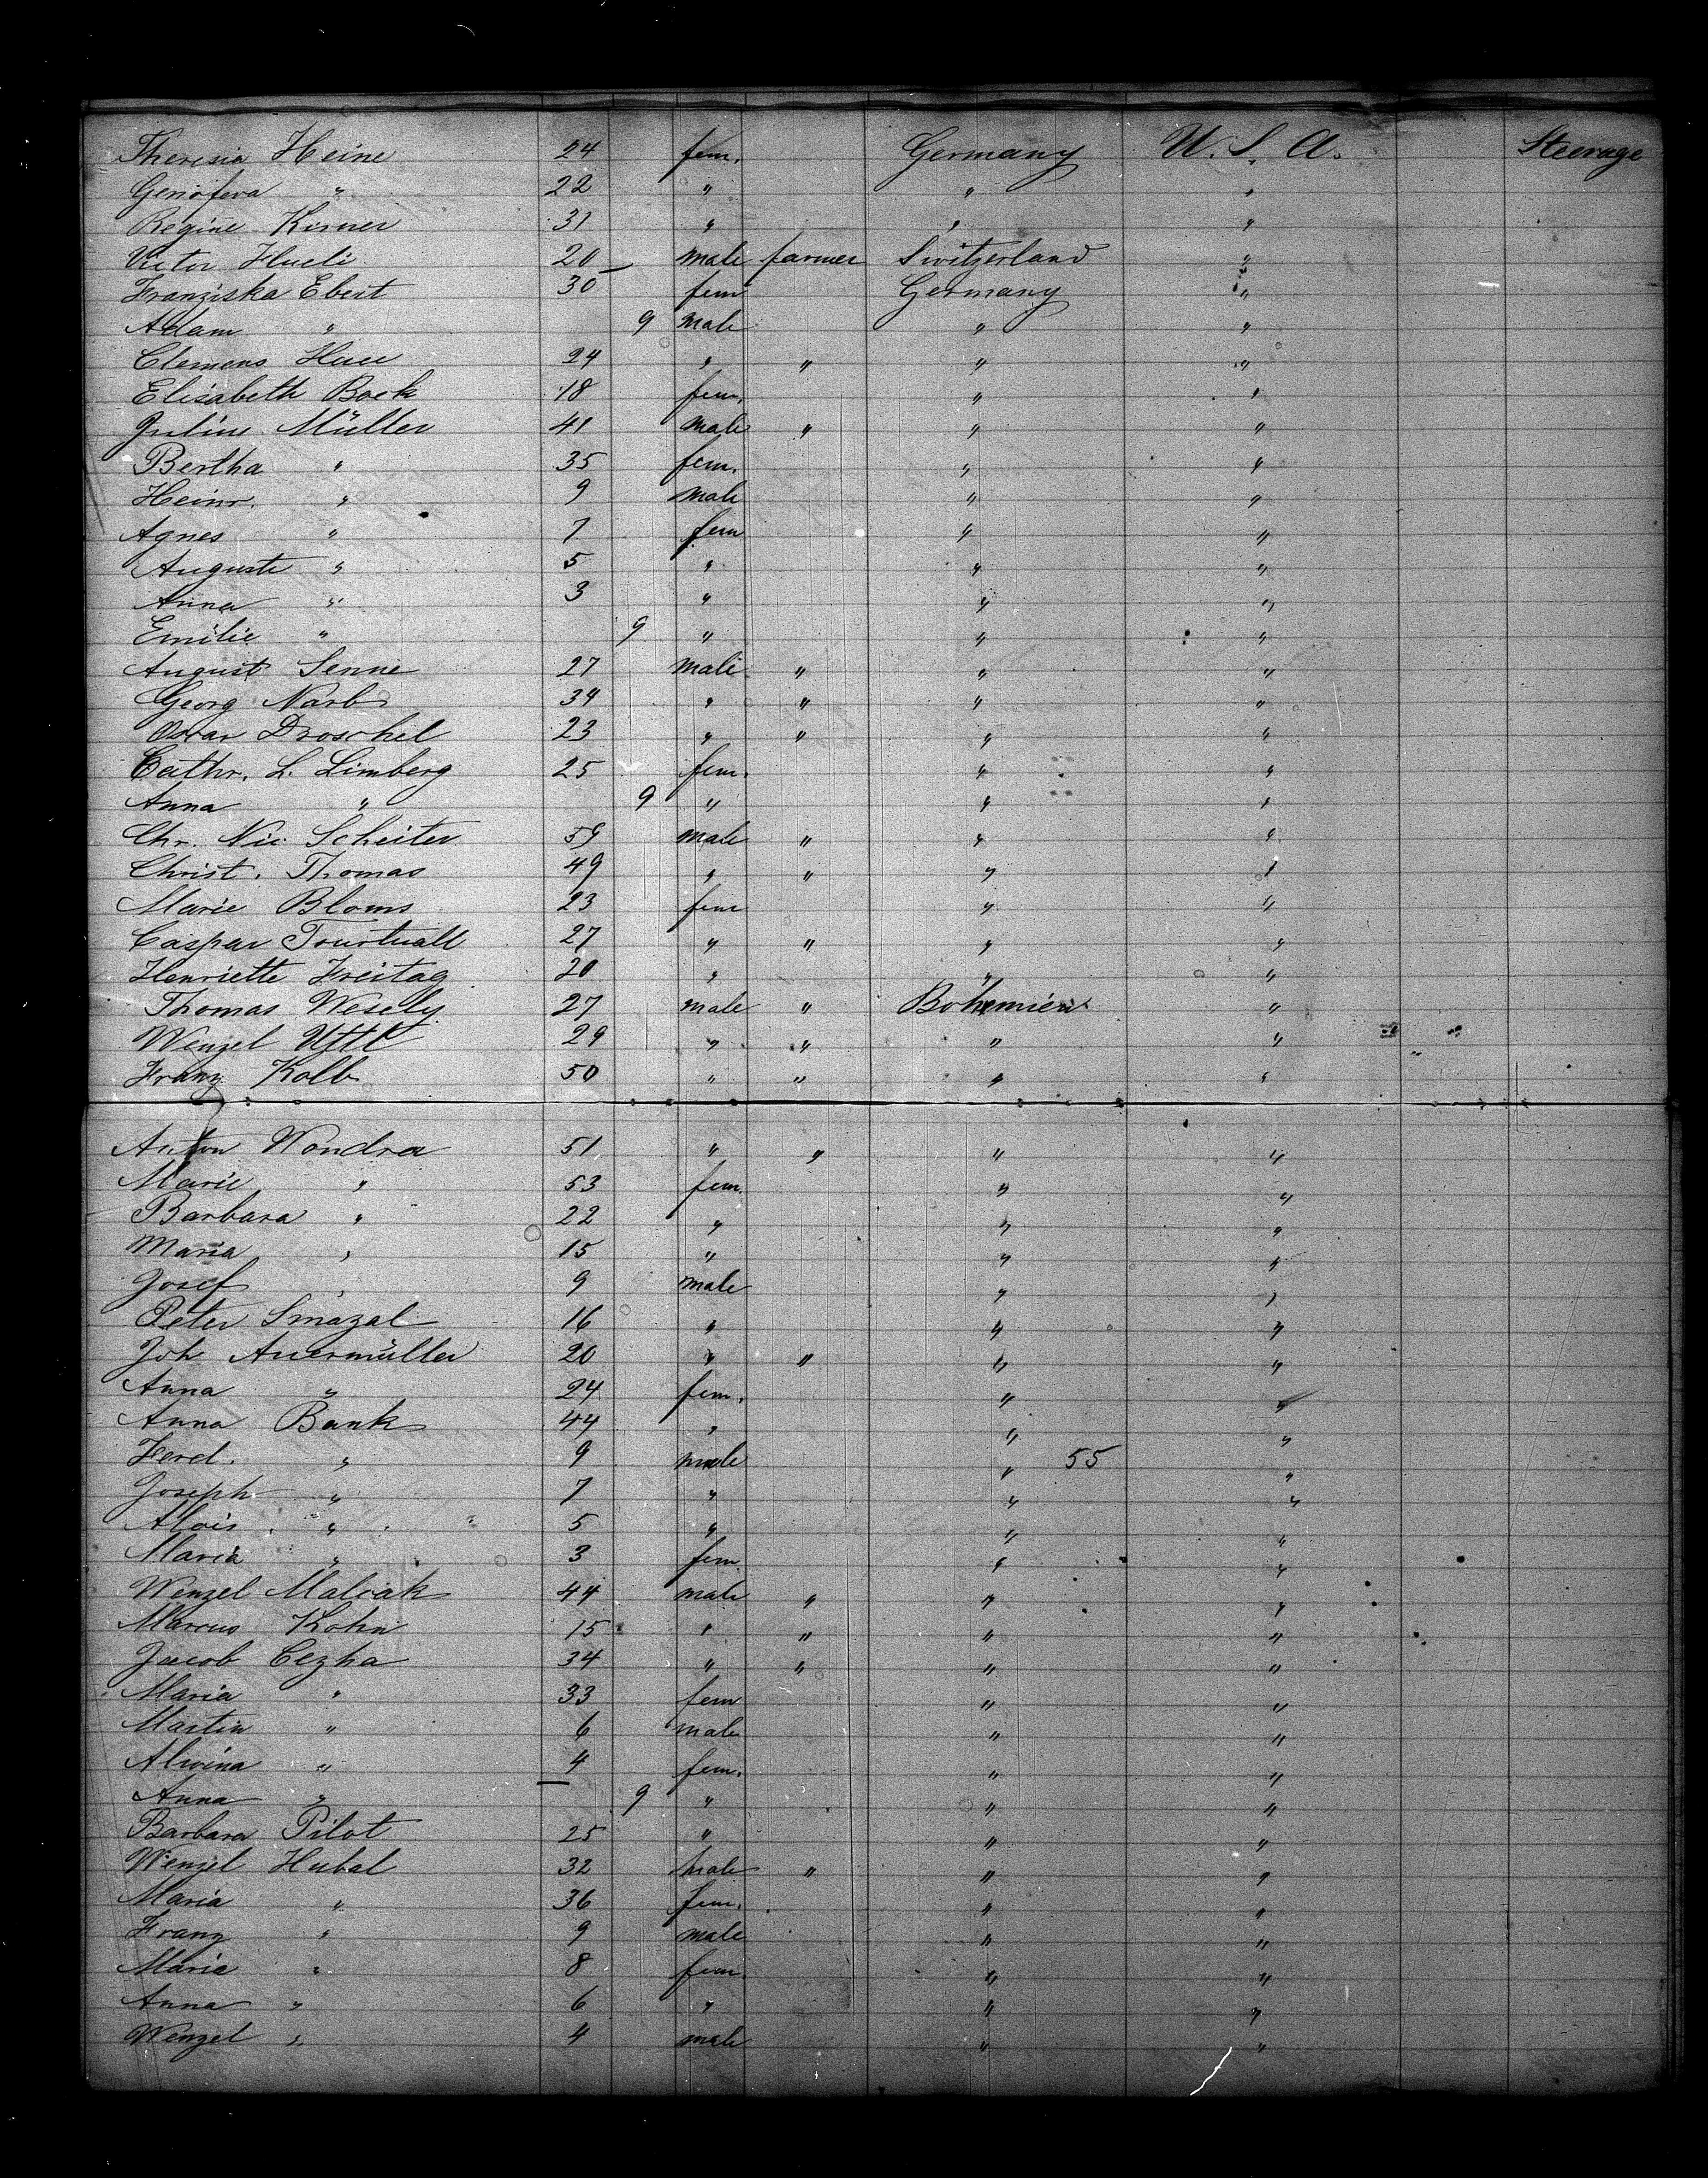 Theresia Heine 24 fem. Germany U. S. A. Steerage
Genofeva " 22 " " "
Regine Kirner 31 " " "
Victor Hueli 20 male farmer Switzerland "
Franziska Ebert 30 fem Germany "
Adam " 9 male " "
Clemens 24 " " " "
Elisabeth Bock 18 fem. " "
Müller 41 male " " "
Bertha " 35 fem. " "
Heinr. " 9 male " "
Agnes " 7 fem " "
Auguste " 5 " " "
Anna " 3 " " "
Emilie " 9 " " "
August Senne 27 male " " "
Georg Narb 34 " " " "
Oscar Droschel 23 " " " "
Cathr. L. Limberg 25 fem. " "
Anna " 9 " " "
Chr. Nic. Scheiter 59 male " " "
Christ. Thomas 49 " " " "
Marie Bloms 23 fem " "
Caspar Tourtuall 27 " " " "
Henriette Freitag 20 " " "
Thomas Wesely 27 male " Bohemien "
Wenzel Uttl 29 " " " "
Franz Kolb 50 " " " "
Anton Wondra 51 " " " "
Marie " 53 fem. " "
Barbara " 22 " " "
Maria " 15 " " "
Josef " 9 male " "
Peter Smazal 16 " " "
Joh Auermüller 20 " " " "
Anna " 24 fem. " "
Anna Bank 44 " " "
Ferd. " 9 male " 55 "
Joseph " 7 " " "
Alois " 5 " " "
Maria " 3 fem " "
Wenzel Malcak 44 male " " "
Marcus Kohn 15 " " " "
Jacob Cezha 34 " " " "
Maria " 33 fem " "
Martin " 6 male " "
Alwina " 4 fem. " "
Anna " 9 " " "
Barbara Pilot 25 " " "
Wenzel Hubal 32 male " " "
Maria " 36 fem. " "
Franz " 9 male " "
Maria " 8 fem. " "
Anna " 6 " " "
Wenzel " 4 male " "